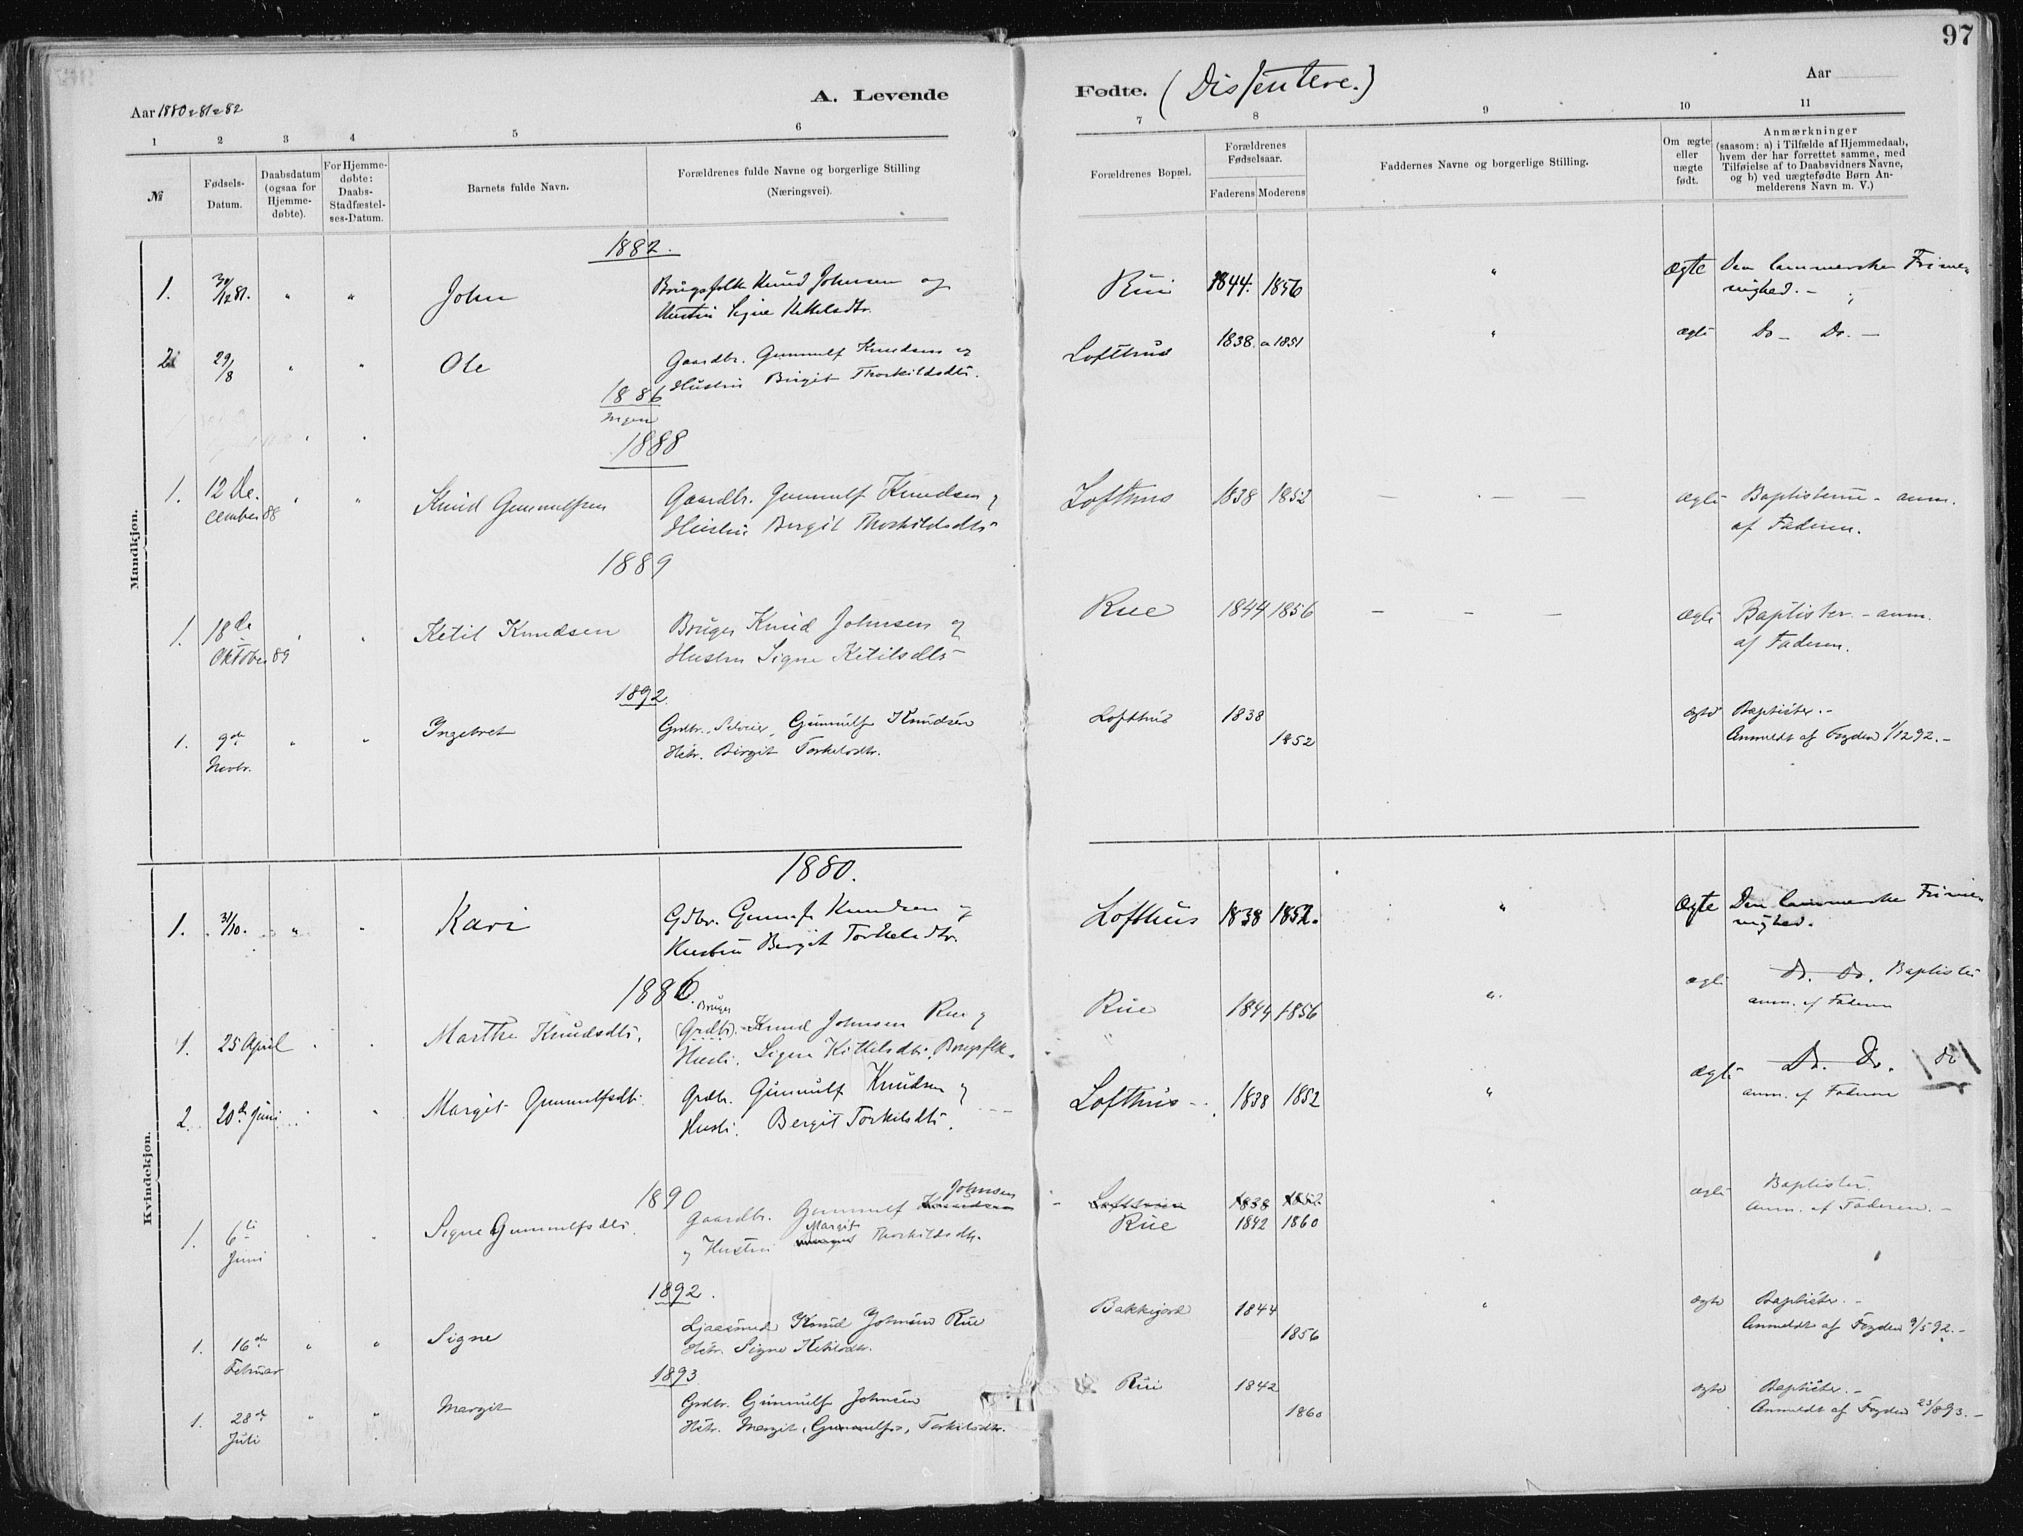 97
Aar 1880-81-82
A. Levende
Fødte. (Dissentere.)
Aar
1 2 3 4 5 6 7 8 9 10 11
№
Fødsels-
Datum.
Daabsdatum
(ogsaa for
Hjemme-
døbte).
For Hjemme-
døbte:
Daabs-
Stadfæstel-
ses-Datum.
Barnets fulde Navn.
Forældrenes fulde Navne og borgerlige Stilling
(Næringsvei).
Forældrenes Bopæl.
Forældrenes
Fødselsaar.
Faderens Moderens
Faddernes Navne og borgerlige Stilling.
Om ægte
eller
uægte
født.
Anmærkninger
(saasom: a) i Tilfælde af Hjemmedaab,
hvem der har forrettet samme, med
Tilføielse af to Daabsvidners Navne,
og b) ved uægtefødte Børn An-
melderens Navn m. V.)
Mandkjøn.
1882.
1. 30/12 81. " " John Brugsfolk Knud Johnsen og Rui 1844. 1856 " ægte Den lammerske Frime-
Hustru Signe Kittelsdtr. nighed. -
2 29/8 " " Ole Gaardbr. Gunnulf Knudsen og Lofthus 1838. 1851 " ægte Do - Do. -
Hustru Birgit Thorkildsdtr.
1886
Ingen
1888
1. 12 De- " " Knud Gunnulfsen Gaardbr. Gunnulf Knudsen og Lofthus 1838 1852 - - - ægte Baptisterne - anm.
cember 88 Hustru Bergit Thorkildsdtr af Faderen.
1889
1. 18de Ketil Knudsen Bruger Knud Johnsen og Rue 1844 1856 - - - ægte Baptister. - anm.
Oktober 89 Hustru Signe Ketilsdtr af Faderen.
1892
1. 9de " " Ingebret Grdbr. Selveier, Gunnulf Knudsen Lofthus 1838 ægte Baptister. -
Novbr. Hstr. Birgit Torkelsdtr. 1852 Anmeldt af Fogden 1/12 92. -
Kvindekjøn.
1880.
1. 31/10. " Kari Gdbr. Gunnulf Knudsen og Lofthus 1838 1852. " Ægte Den lammerske Frime-
Hustru Bergit Torkelsdtr. nighed.
1886.
1. 25 April Marthe Knudsdtr. (Grdbr.) Bruger Knud Johnsen Rue og Rue 1844 1856 " ægte do. do. Baptister
Hustr. Signe Kittelsdtr. Brugsflk. anm. af Faderen
2. 20de Juni Margit Gunnulfsdtr. Grdbr. Gunnulf Knudsen og Lofthus 1838 1852 " ægte Do. Do. do
Hustr. Bergit Torkilsdtr. anm. af Faderen
1890
1. 6te Signe Gunnulfsdtr. Gaardbr. Gunnulf Knudsen Johnsen Lofthus 1838 1852 ægte Baptister.
Juni og Hustru Margit Thorkildsdtr. Rue 1842 1860 Anm. af Faderen. -
1892.
1. 16de " " Signe Ljaasmed Knud Johnsen Rue Bakkejord 1844 ægte Baptister. -
Februar Hstr. Signe Ketilsdtr. 1856 Anmeldt af Fogden 9/5 92. -
1893
1. 28de " " Margit Grdbr. Gunnulf Johnsen Rui 1842 ægte Baptister. -
Juli Hstr. Margit, Gunnulfs, Torkilsdtr. 1860 Anmeldt af Fogden 23/8 93. -